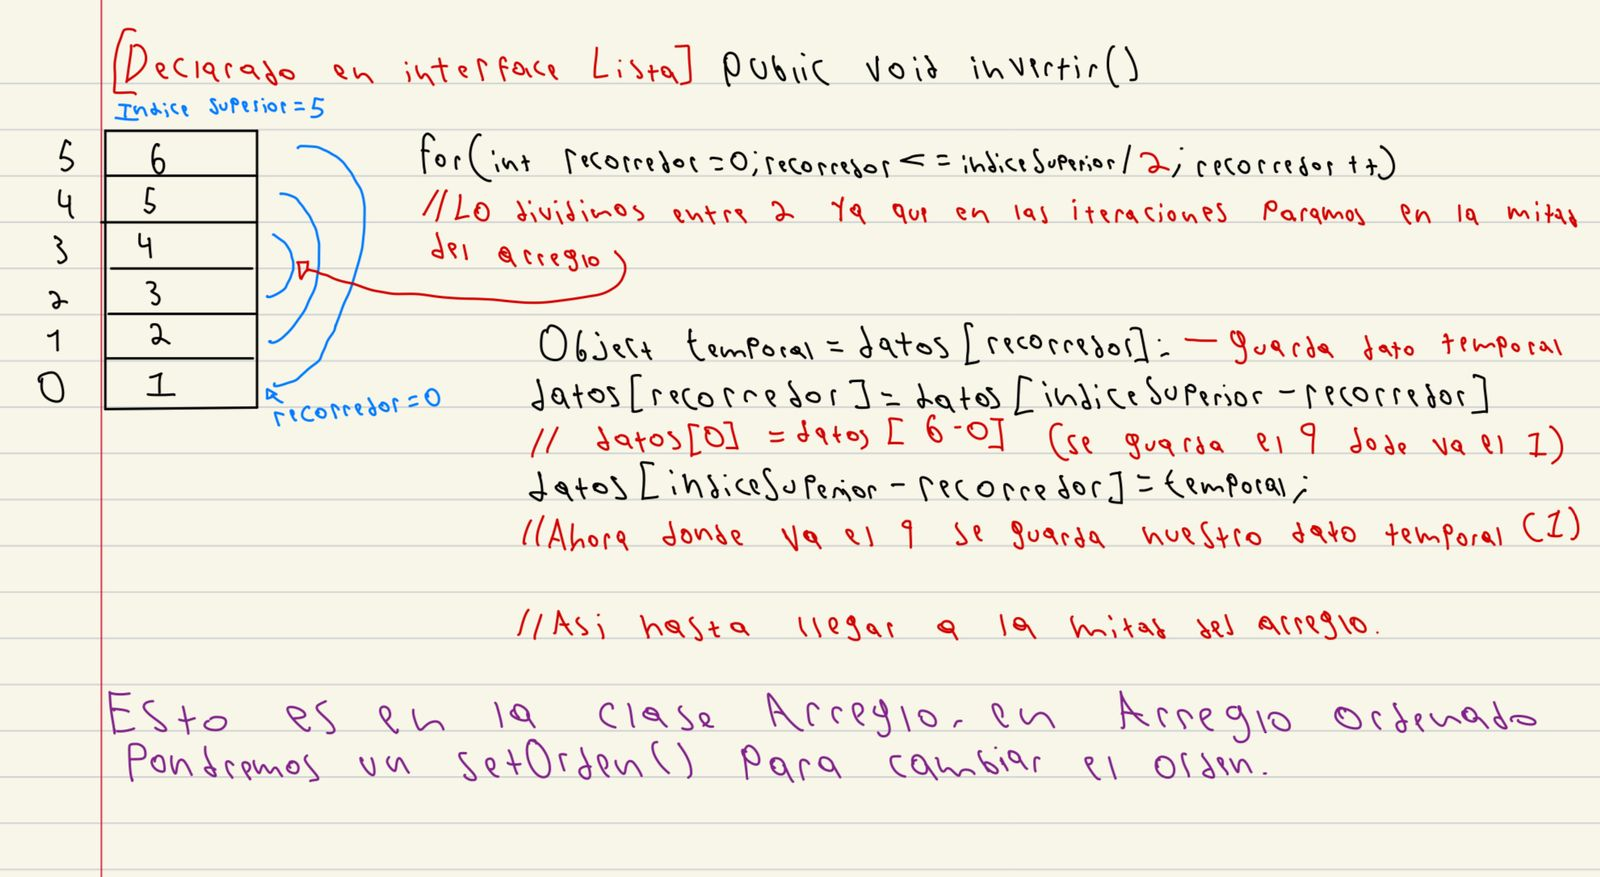 [Declarado en interface Lista] public void invertir()
Indice Superior=5
5 6
4 5
3 4
2 3
1 2
0 1
recorredor=0
for(int recorredor=0;recorredor<=indiceSuperior/2; recorredor++)
//Lo dividimos entre 2 ya que en las iteraciones paramos en la mitad
del arreglo
Object temporal = datos[recorredor]; — guarda dato temporal
datos[recorredor]=datos[indiceSuperior-recorredor]
// datos[0] = datos[6-0] (se guarda el 9 dode va el 1)
datos[indiceSuperior-recorredor]=temporal;
//Ahora donde va el 9 se guarda nuestro dato temporal (1)
//Asi hasta llegar a la mitad del arreglo.
Esto es en la clase Arreglo. en Arreglo ordenado
Pondremos un setOrden() para cambiar el orden.